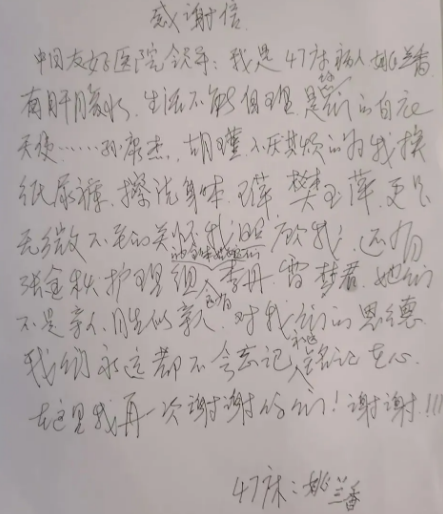 感谢信
中日友好医院领导：我是47床病人姚兰香.
有肝腹水，生活不能自理，是你们的白衣
天使……孙康杰，胡瑾，不厌其烦的为我换
纸尿裤，擦洗身体，王萍 樊玉萍，更是
无微不至的关怀我照顾我；还有
张金秋护理组的全体护理们 还有李丹 雷梦君，她们
不是亲人胜似亲人，对我们的恩德
我们永远都不会忘记，铭记在心.
在这里我再一次谢谢你们！谢谢!!!
47床：姚兰香